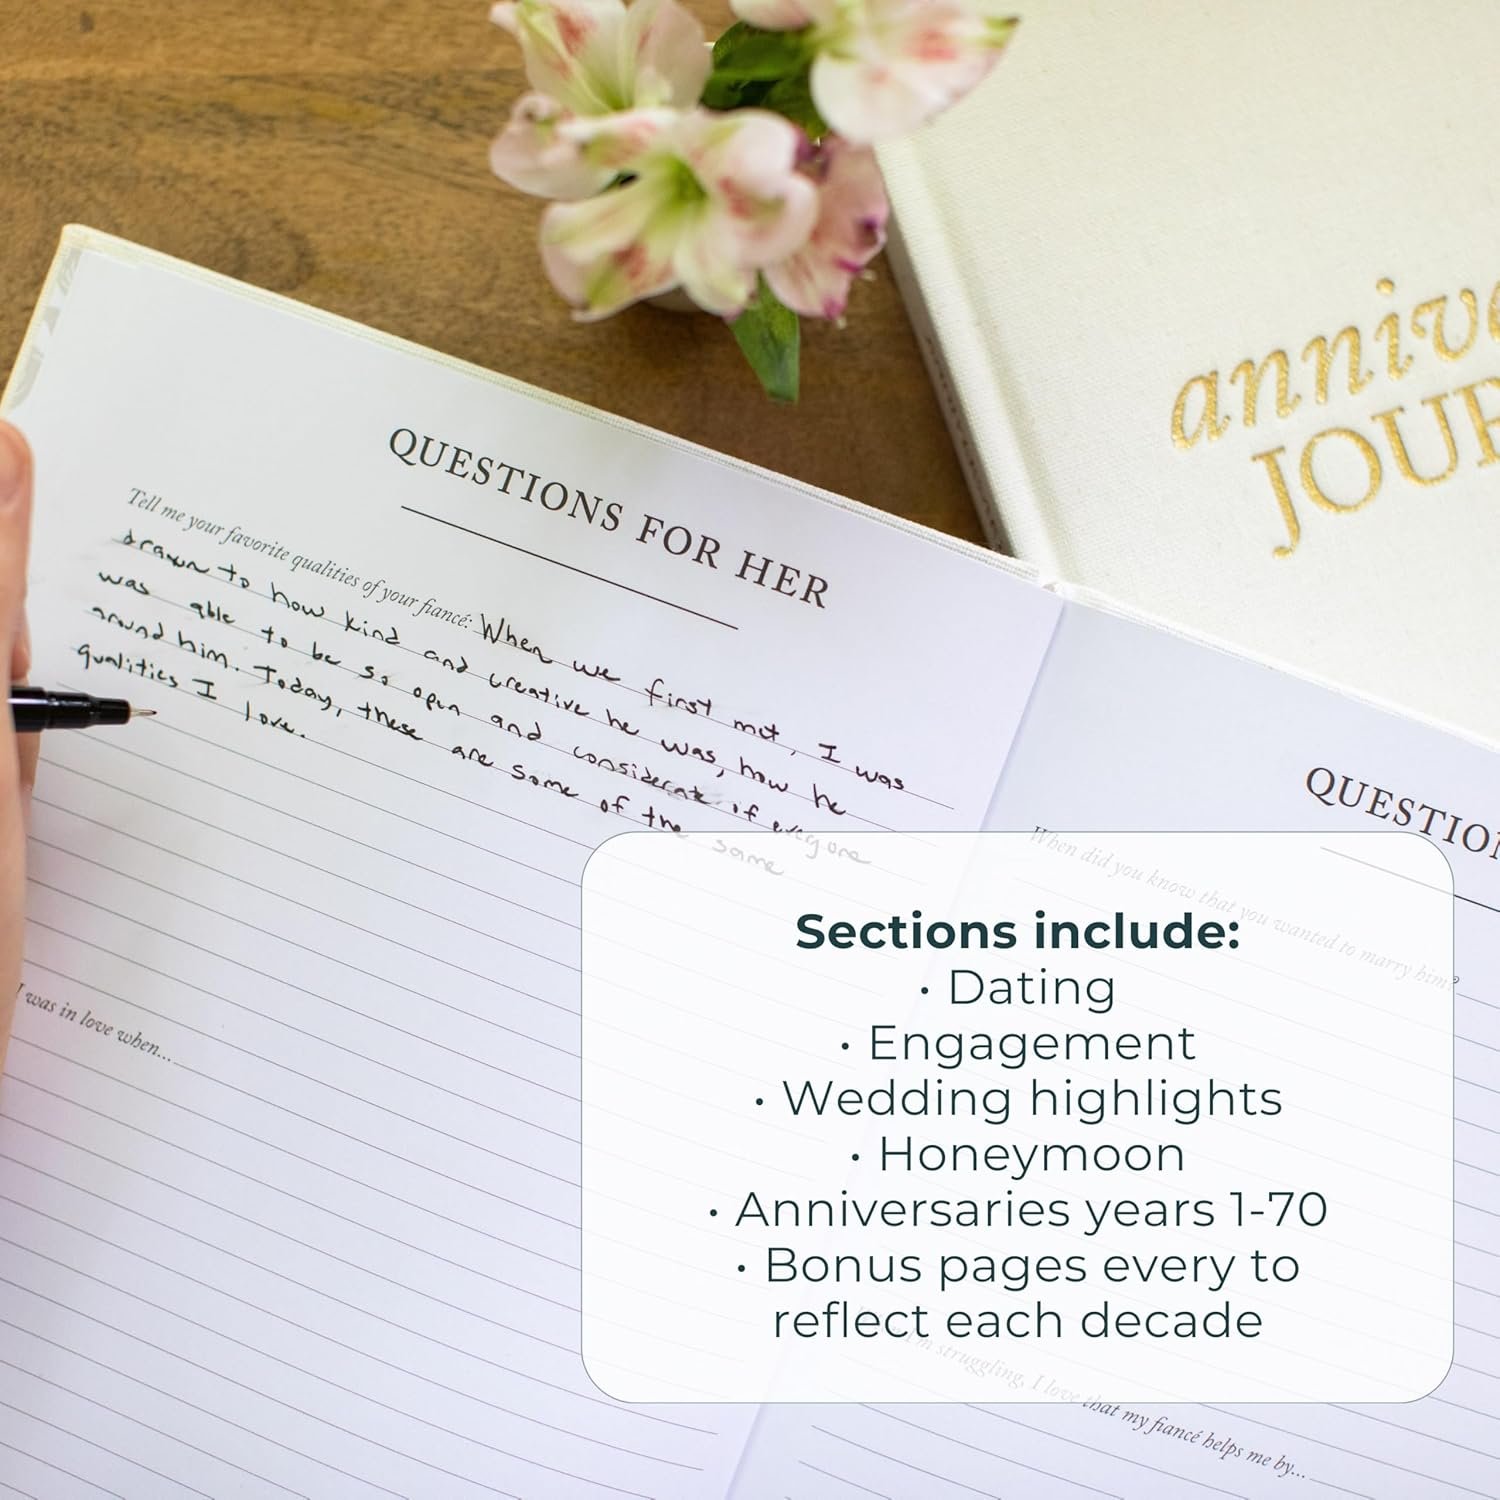 anniv
JOUR
QUESTIONS FOR HER
Tell me your favorite qualities of your fiancé: When we first met, I was
drawn to how kind and creative he was, how he
was able to be so open and considerate of everyone
around him. Today, these are some of the same
qualities I love.
I was in love when...
QUESTION
When did you know that you wanted to marry him?
I'm struggling, I love that my fiancé helps me by...
Sections include:
• Dating
• Engagement
• Wedding highlights
• Honeymoon
• Anniversaries years 1-70
• Bonus pages every to
reflect each decade